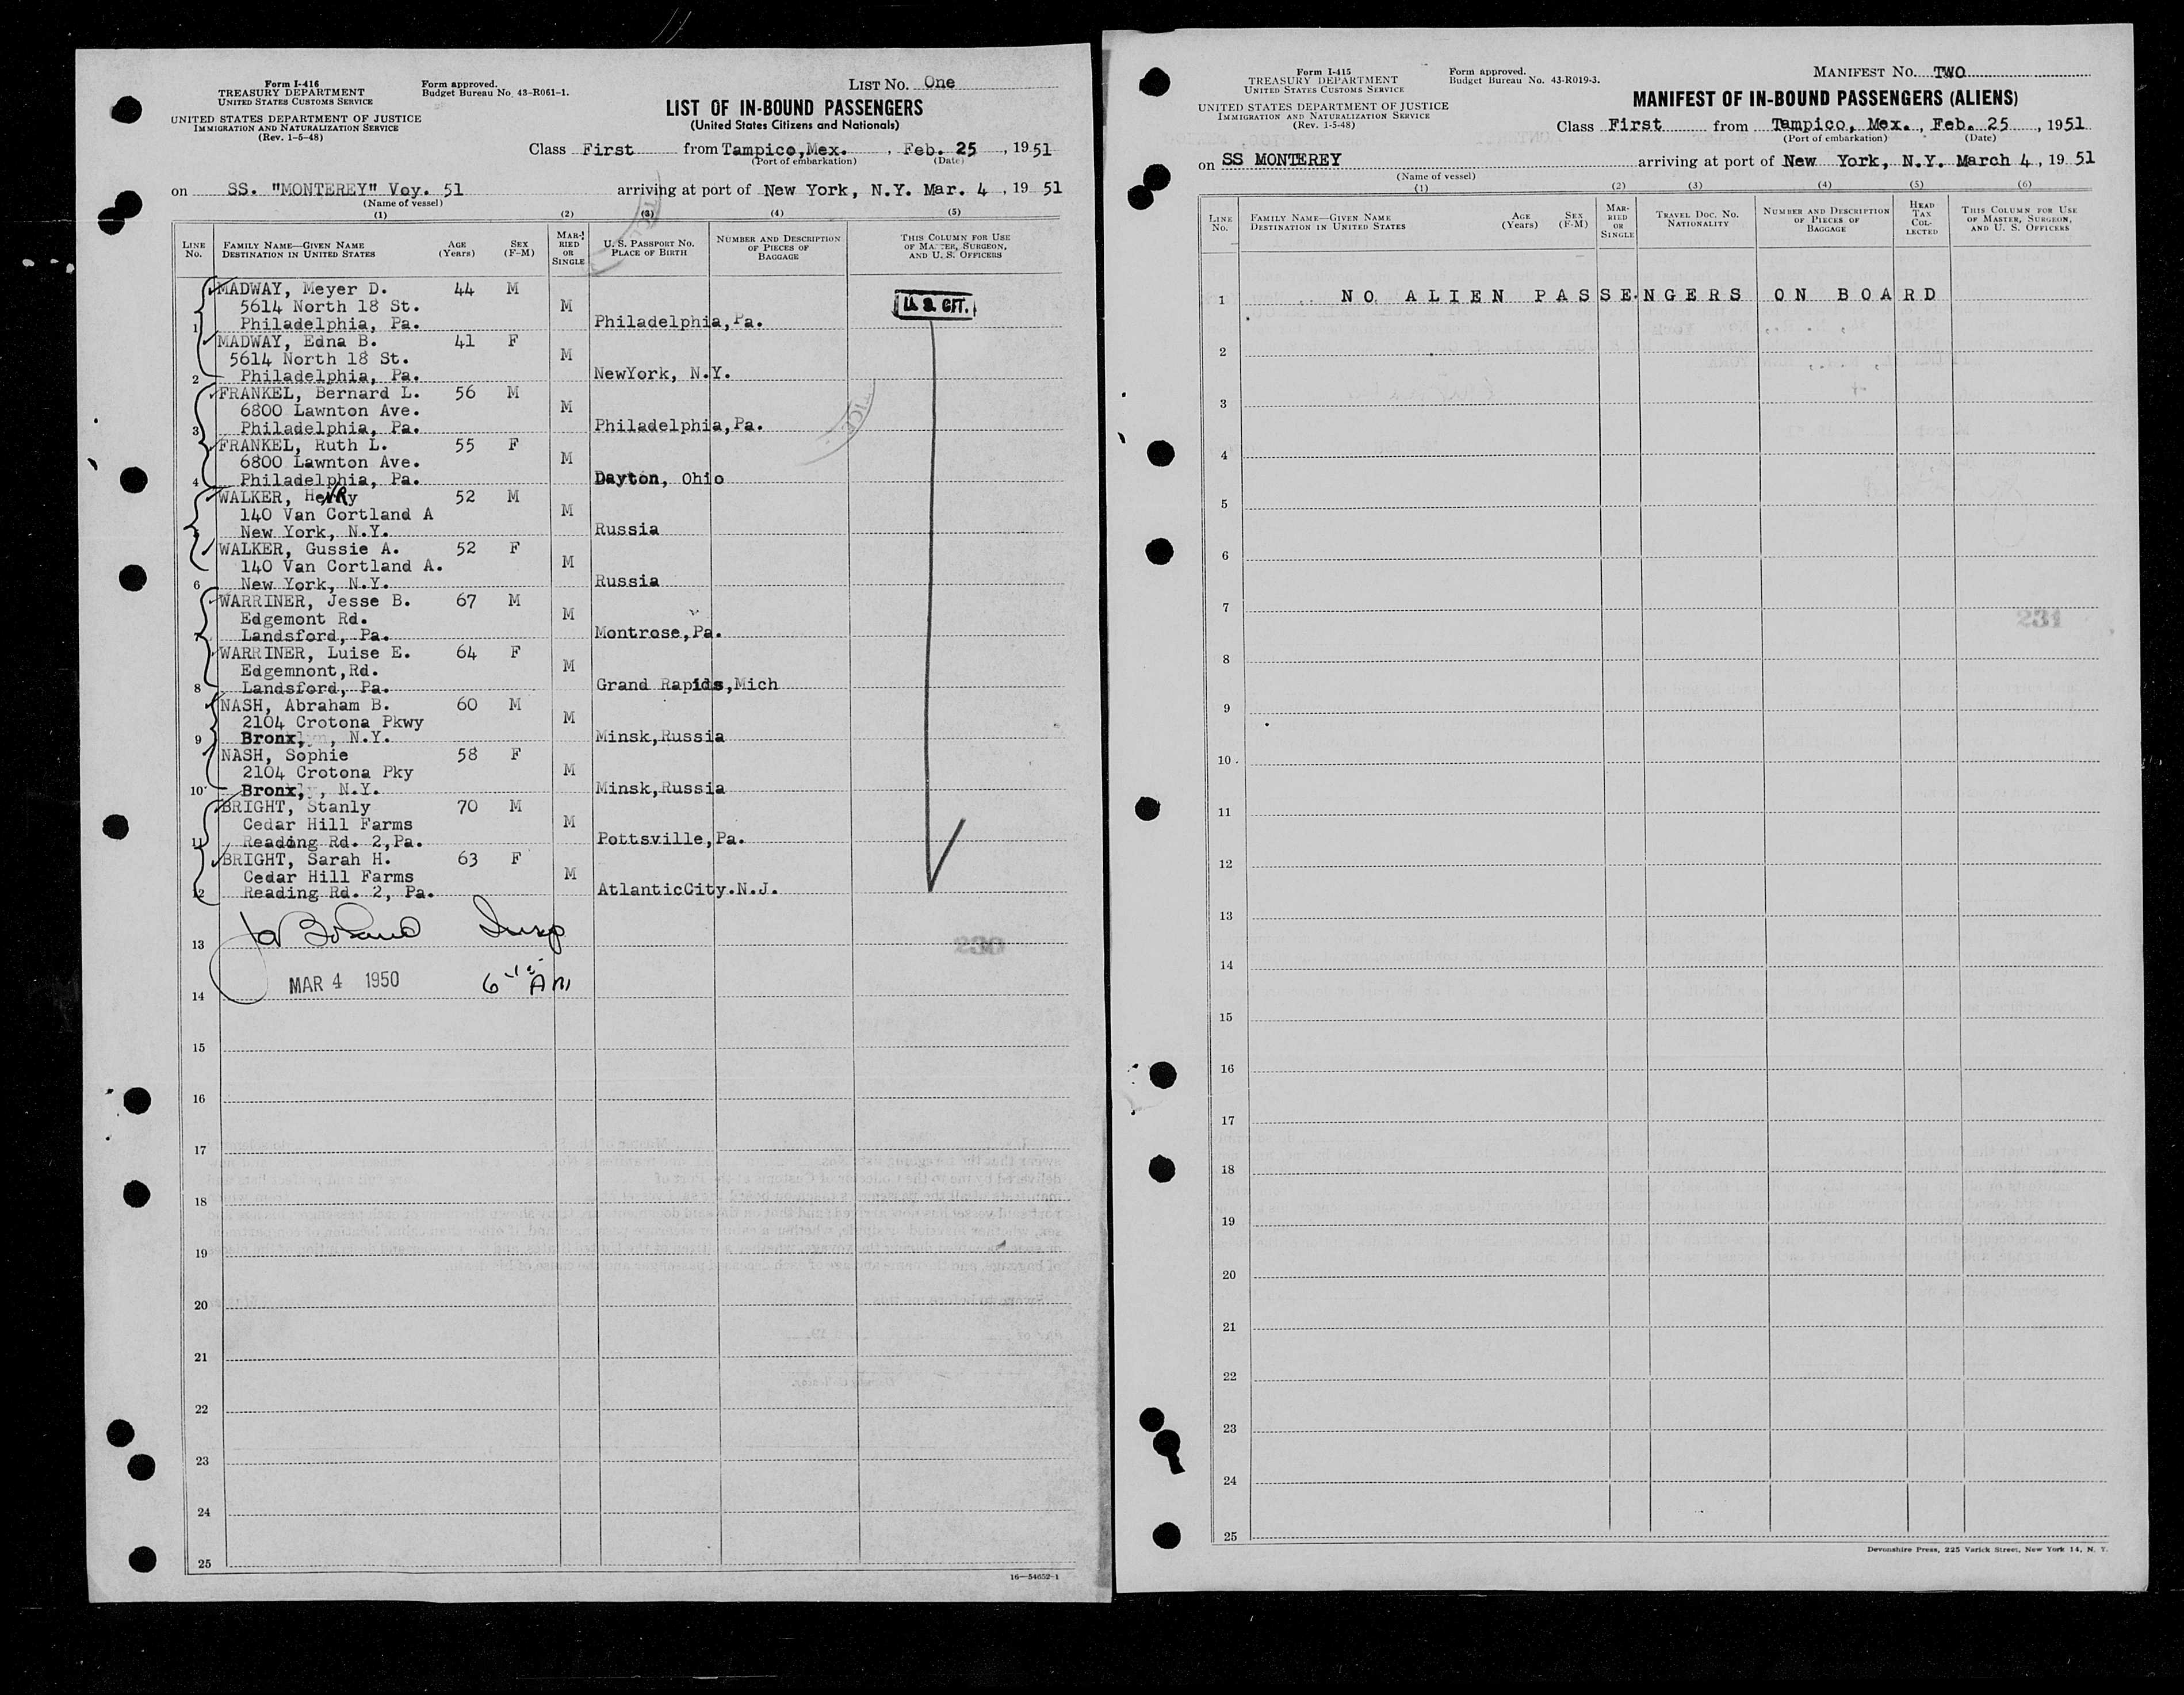 Form I-416
TREASURY DEPARTMENT
UNITED STATES CUSTOMS SERVICE
UNITED STATES DEPARTMENT OF JUSTICE
IMMIGRATION AND NATURALIZATION SERVICE
(Rev. 1-5-48)
Form approved.
Budget Bureau No. 43-R061-1.
LIST No. One
LIST OF IN-BOUND PASSENGERS
(United States Citizens and Nationals)
Class First from Tampico,Mex. , Feb. 25 , 1951
(Port of embarkation) (Date)
on SS. "MONTEREY" Voy. 51 arriving at port of New York, N.Y. Mar. 4 , 19 51
(Name of vessel)
(1) (2) (3) (4) (5)
LINE No. FAMILY NAME—GIVEN NAME DESTINATION IN UNITED STATES AGE (Years) SEX (F-M) MARRIED OR SINGLE U. S. PASSPORT No. PLACE OF BIRTH NUMBER AND DESCRIPTION OF PIECES OF BAGGAGE THIS COLUMN FOR USE OF MASTER, SURGEON, AND U. S. OFFICERS
MADWAY, Meyer D. 44 M
5614 North 18 St. M U. S. CIT.
1 Philadelphia, Pa. Philadelphia,Pa.
MADWAY, Edna B. 41 F
5614 North 18 St. M
2 Philadelphia, Pa. NewYork, N.Y.
FRANKEL, Bernard L. 56 M
6800 Lawnton Ave. M
3 Philadelphia, Pa. Philadelphia,Pa.
FRANKEL, Ruth L. 55 F
6800 Lawnton Ave. M
4 Philadelphia, Pa. Dayton, Ohio
WALKER, Henry 52 M
140 Van Cortland A M
New York, N.Y. Russia
WALKER, Gussie A. 52 F
140 Van Cortland A. M
6 New York, N.Y. Russia
WARRINER, Jesse B. 67 M
Edgemont Rd. M
7 Landsford, Pa. Montrose,Pa.
WARRINER, Luise E. 64 F
Edgemnont,Rd. M
8 Landsford, Pa. Grand Rapids,Mich
NASH, Abraham B. 60 M
2104 Crotona Pkwy M
9 Bronx, N.Y. Minsk,Russia
NASH, Sophie 58 F
2104 Crotona Pky M
10 Bronx, N.Y. Minsk,Russia
BRIGHT, Stanly 70 M
Cedar Hill Farms M
11 Reading Rd. 2,Pa. Pottsville,Pa.
BRIGHT, Sarah H. 63 F
Cedar Hill Farms M
12 Reading Rd. 2, Pa. AtlanticCity.N.J.
Insp
13 230
MAR 4 1950 AM
14
15
16
17
18
19
20
21
22
23
24
25
16—54652-1
Form I-415
TREASURY DEPARTMENT
UNITED STATES CUSTOMS SERVICE
UNITED STATES DEPARTMENT OF JUSTICE
IMMIGRATION AND NATURALIZATION SERVICE
(Rev. 1-5-48)
Form approved.
Budget Bureau No. 43-R019-3.
MANIFEST No. TWO
MANIFEST OF IN-BOUND PASSENGERS (ALIENS)
Class First from Tampico, Mex. , Feb. 25 , 1951
(Port of embarkation) (Date)
on SS MONTEREY arriving at port of New York, N.Y. March 4 , 19 51
(Name of vessel)
(1) (2) (3) (4) (5) (6)
LINE No. FAMILY NAME—GIVEN NAME DESTINATION IN UNITED STATES AGE (Years) SEX (F-M) MARRIED OR SINGLE TRAVEL DOC. No. NATIONALITY NUMBER AND DESCRIPTION OF PIECES OF BAGGAGE HEAD TAX COLLECTED THIS COLUMN FOR USE OF MASTER, SURGEON, AND U. S. OFFICERS
1 NO ALIEN PASSENGERS ON BOARD
2
3
4
5
6
7 231
8
9
10
11
12
13
14
15
16
17
18
19
20
21
22
23
24
25
Devonshire Press, 225 Varick Street, New York 14, N. Y.